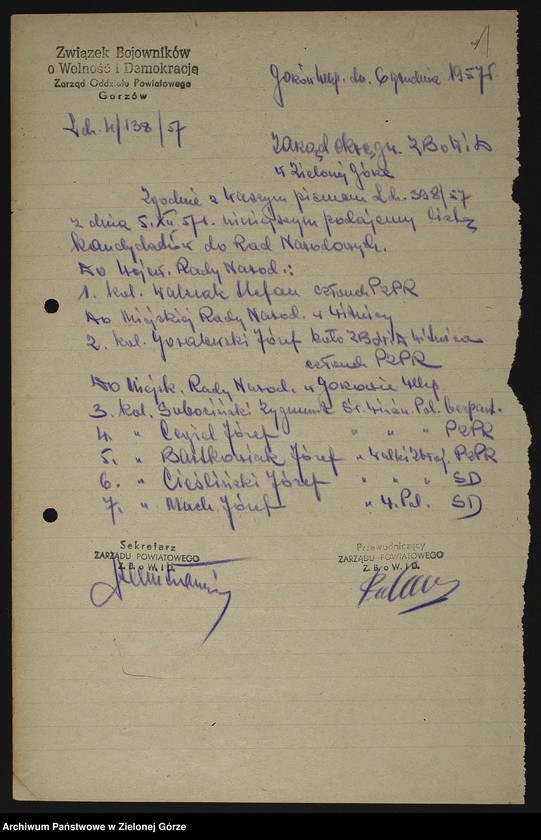 1
Związek Bojowników
o Wolność i Demokrację
Zarząd Oddziału Powiatowego
Gorzów
Gorzów Wlkp. dn. 6 grudnia 1957 r.
L.dz. W/138/57
Zarząd Okręgu Z Bo W i D
w Zielonej Górze
Zgodnie z Waszym pismem L.dz. 398/57
z dnia 5.XII.57 r. niniejszym podajemy listę
kandydatów do Rad Narodowych.
Do Wojew. Rady Narod.:
1. kol. Walczak Stefan członek PZPR
Do Miejskiej Rady Narod. w Witnicy
2. kol. Józef koło Z Bo W i D Witnica
członek PZPR
Do Miejsk. Rady Narod. w Gorzowie Wlkp.
3. kol. Suboczyński Zygmunt b. Więźn. Pol. bezpart.
4. " Józef " " " PZPR
5. " Bartkowiak Józef " Walki Zbroj. PZPR
6. " Cieśliński Józef " " " SD
7. " Mach Józef " W. Pol. SD
Sekretarz
ZARZĄDU POWIATOWEGO
Z. B o W. I D.
Przewodniczący
ZARZĄDU POWIATOWEGO
Z. B o W. I D.
Archiwum Państwowe w Zielonej Górze